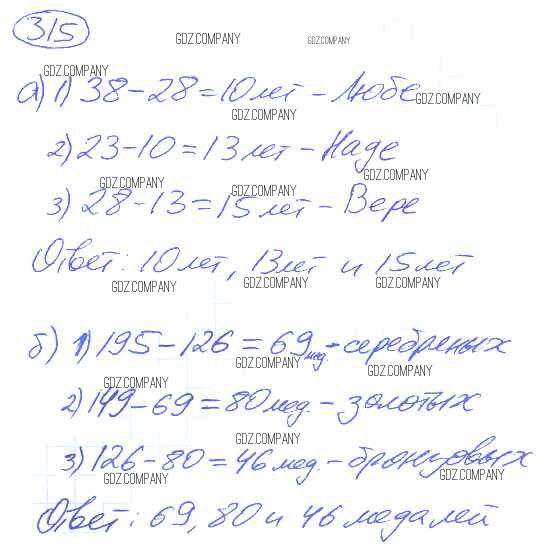 315
GDZ.COMPANY GDZ.COMPANY
GDZ.COMPANY
а) 1) 38-28=10 лет - Любе
GDZ.COMPANY
GDZ.COMPANY
2) 23-10=13 лет - Наде
GDZ.COMPANY
GDZ.COMPANY GDZ.COMPANY
3) 28-13=15 лет - Вере
Ответ: 10 лет, 13 лет и 15 лет
GDZ.COMPANY GDZ.COMPANY GDZ.COMPANY
GDZ.COMPANY GDZ.COMPANY
б) 1) 195-126=69 мед. - серебреных
GDZ.COMPANY GDZ.COMPANY
GDZ.COMPANY
2) 149-69=80 мед. - золотых
GDZ.COMPANY
3) 126-80=46 мед. - бронзовых
GDZ.COMPANY GDZ.COMPANY GDZ.COMPANY
Ответ: 69, 80 и 46 медалей